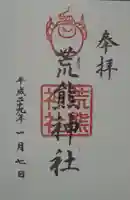 奉拝
荒熊神社
荒熊神社
平成二十九年 一月 七日